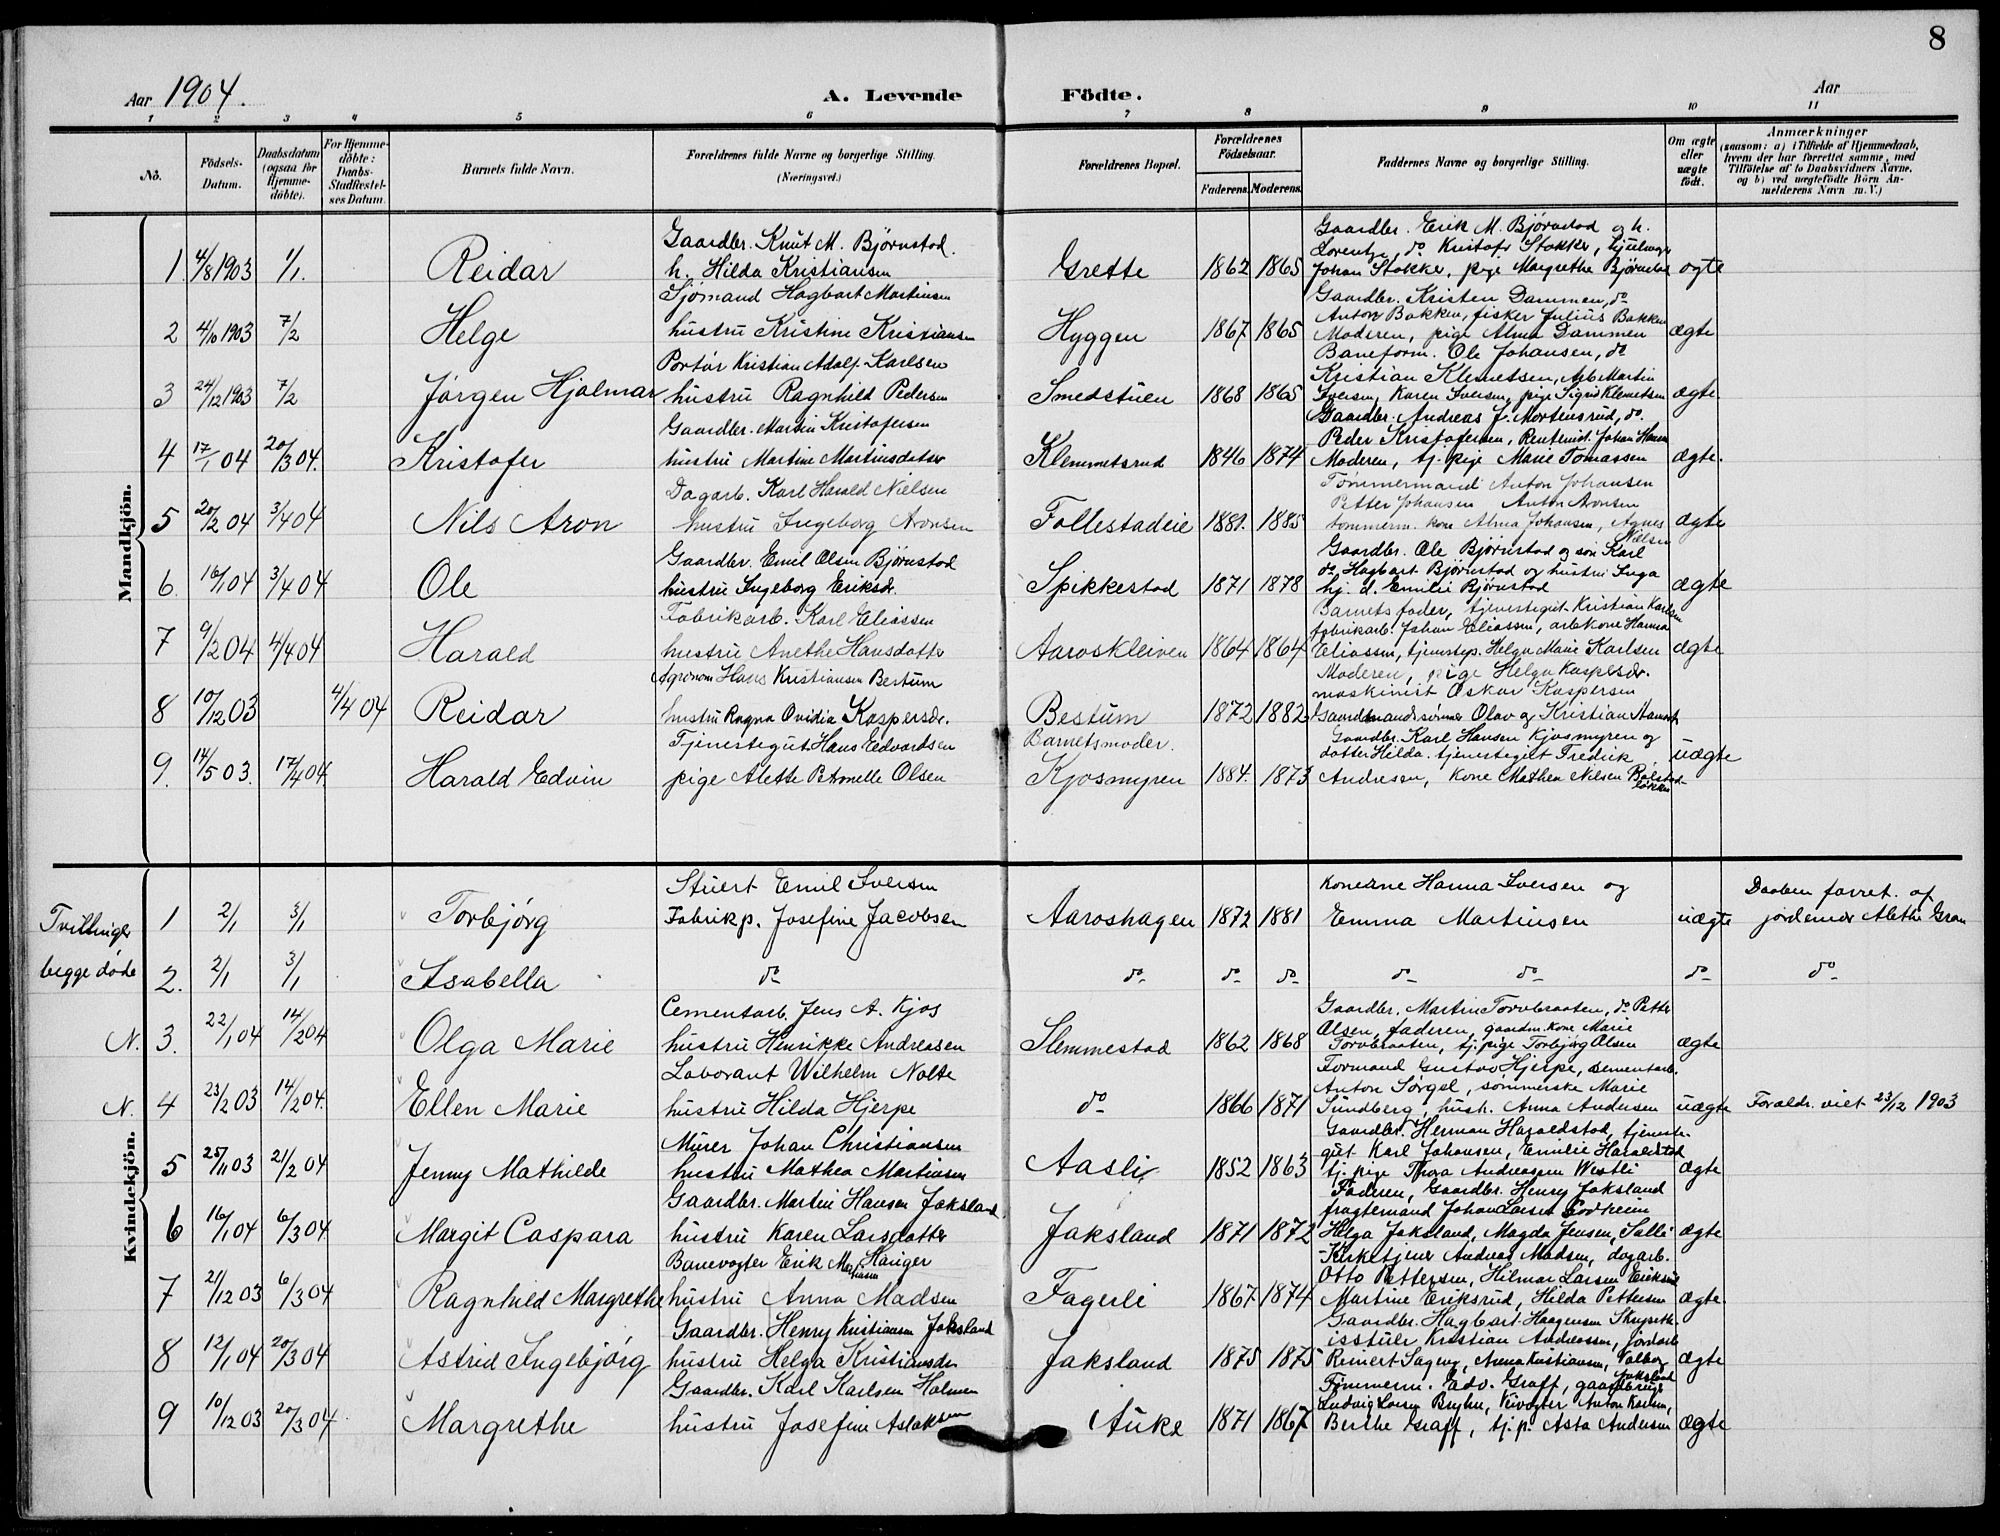 8
Aar 1904.
A. Levende Födte.
Aar
1 2 3 4 5 6 7 8 9 10 11
Nô.
Födsels-Datum.
Daabsdatum (ogsaa for Hjemme-döbte).
For Hjemme-döbte: Daabs-Stadfæstel-ses Datum.
Barnets fulde Navn.
Forældrenes fulde Navne og borgerlige Stilling. (Næringsvei.)
Forældrenes Bopæl.
Forældrenes Födselsaar.
Faderens. Moderens.
Faddernes Navne og borgerlige Stilling.
Om ægte eller uægte födt.
Anmærkninger (saasom: a) i Tilfælde af Hjemmedaab, hvem der har forrettet samme, med Tilföielse af to Daabsvidners Navne, og b) ved uægtefödte Börn Anmelderens Navn m. V.)
Mandkjön.
Gaardbr. Knut M. Bjørnstad.
Gaardbr. Erik M. Bjørnstad og h.
Lorentze, do Kristofr Stokker,
1. 4/8 1903 1/1. Reidar h. Hilda Kristiansen Grette 1862 1865 Johan Stokker, pige Margrethe Bjørnstad ægte
Sjømand Hagbart Martinsen
Gaardbr. Kristen Dammen, do
Anton Bakken, fisker Julius Bakken
2 4/10 1903 7/2 Helge hustru Kristine Kristiansen Hyggen 1867 1865 Moderen, pige Alma Dammen ægte
Portør Kristian Adolf Karlsen
Baneform. Ole Johansen, do
Kristian Klemetsen, Arb. Martin
3 24/12 1903 7/2 Jørgen Hjalmar hustru Ragnhild Pedersen Smedstuen 1868 1865 Iversen, Karen Iversen, pige Sigrid Klemetsen ægte.
Gaardbr. Martin Kristofersen
Gaardbr. Andreas J. Mortensrud, do.
Peder Kristofersen, Rentenist. Johan Hansen
4 17/1 04 20/3 04. Kristofer hustru Martine Martinsdatter Klemmetsrud 1846 1874 Moderen, tj. pige Marie Tomassen ægte.
Dagarb. Karl Harald Nielsen
Tømmermand Anton Johansen
Petter Johansen Anton Aronsen
5 20/2 04 3/4 04 Nils Aron hustru Ingeborg Aronsen Follestadeie 1881. 1885 tømmerm. kone Alma Johansen, Agnes Nielsen ægte
Gaardbr. Emil Olsen Bjørnstad
Gaardbr. Ole Bjørnstad og søn Karl
do Hagbart Bjørnstad og hustru Inga
6. 16/1 04 3/4 04 Ole hustru Ingeborg Eriksdr. Spikkestad 1871 1878 hj. d. Emilie Bjørnstad ægte
Fabrikarb. Karl Eliassen
Barnets fader, tjenestegut Kristian Karlsen
fabrikarb. Johan Eliassen, arb. kone Hanna
7 9/2 04 4/4 04 Harald hustru Anethe Hansdatter Aaroskleiven 1864 1864 Eliassen, tjenestep. Helga Marie Karlsen ægte
Agronom Hans Kristiansen Bertum
Moderen, pige Helga Kaspersdr.
maskinist Oskar Kaspersen
8 10/12 03 4/4 04 Reidar hustru Ragna Ovidia Kaspersdr. Bestum 1872 1882 Gaardmandssønner Olav og Kristian
Tjenestegut Hans Edvardsen Barnetsmoder.
Gaardbr. Karl Hansen Kjosmyren og
datter Hilda. tjenestegut Fredrik uægte
9. 14/5 03. 17/4 04. Harald Edvin pige Alette Petronelle Olsen Kjosmyren 1884. 1873 Andresen, kone Mathea Nilsen Bolstadløkken
Kvindekjön.
Stuert Emil Iversen
konerne Hanna Iversen og
Daaben forret. af
Tvillinger 1 2/1 3/1 Torbjørg Fabrikp. Josefine Jacobsen Aaroshagen 1872 1881 Emma Martinsen uægte jordemor Alethe Gran
begge døde 2. 2/1 3/1 Isabella do do do do do do do do
Cementarb. Jens A. Kjos
Gaardbr. Martin Torvbraaten, do Petter
Olsen, faderen, gaardm. kone Marie
N. 3. 22/1 04 14/2 04 Olga Marie hustru Henrikke Andreasen Slemmestad 1862 1868 Torvbraaten, tj. pige Torbjørg Olsen ægte
Laborant Wilhelm Nolte
Formand Gustav Hjerpe, sementarb.
Anton Sørgel, sømmerske Marie
N. 4 23/2 03 14/2 04. Ellen Marie hustru Hilda Hjerpe do 1866 1871 Sundberg, hust. Anna Andersen uægte Foraldr. viet 23/12 1903
Murer Johan Christiansen
Gaardbr. Herman Haraldstad, tjeneste-
gut Karl Johansen, Emilie Haraldstad
5 25/11 03 21/2 04 Jenny Mathilde hustru Mathea Martinsen Aasli 1852 1863 tj. pige Thora Andreasen Westli ægte
Gaardbr. Martin Hansen Jaksland
Faderen, Gaardbr. Henry Jaksland
fragtemand Johan Larsen Godheim
6 16/1 04 6/3 04 Margit Caspara hustru Karen Larsdatter Jaksland 1871 1872 Helga Jaksland, Magda Jensen, Salli ægte
Banevogter Erik Mathiasen Hanger
Kirketjener Andreas Madsen, dagarb.
Otto Pettersen, Hilmar Larsen Eriksrud
7 21/12 03 6/3 04 Ragnhild Margrethe hustru Anna Madsen Fagerli 1867 1874 Martine Eriksrud, Hilda Pettersen ægte.
Gaardbr. Henry Kristiansen Jaksland
Gaardbr. Hagbart Haagensen
Kristian Andreassen, jordarb
8 12/1 04 20/3 04 Astrid Ingebjørg hustru Helga Kristiansdr Jaksland 1875 1875 Reinert Sageng, Anna Kristiansen, Valborg Jaksland ægte
Gaardbr. Karl Karlsen Holmen
Tømmerm. Edv. Graff, gaardbruger
Ludvig Larsen Veivogter Anton Karlsen,
9 10/12 03 20/3 04 Margrethe hustru Josefine Aslaksen Auke 1871 1867 Berthe Graff, tj. p. Asta Andersen ægte